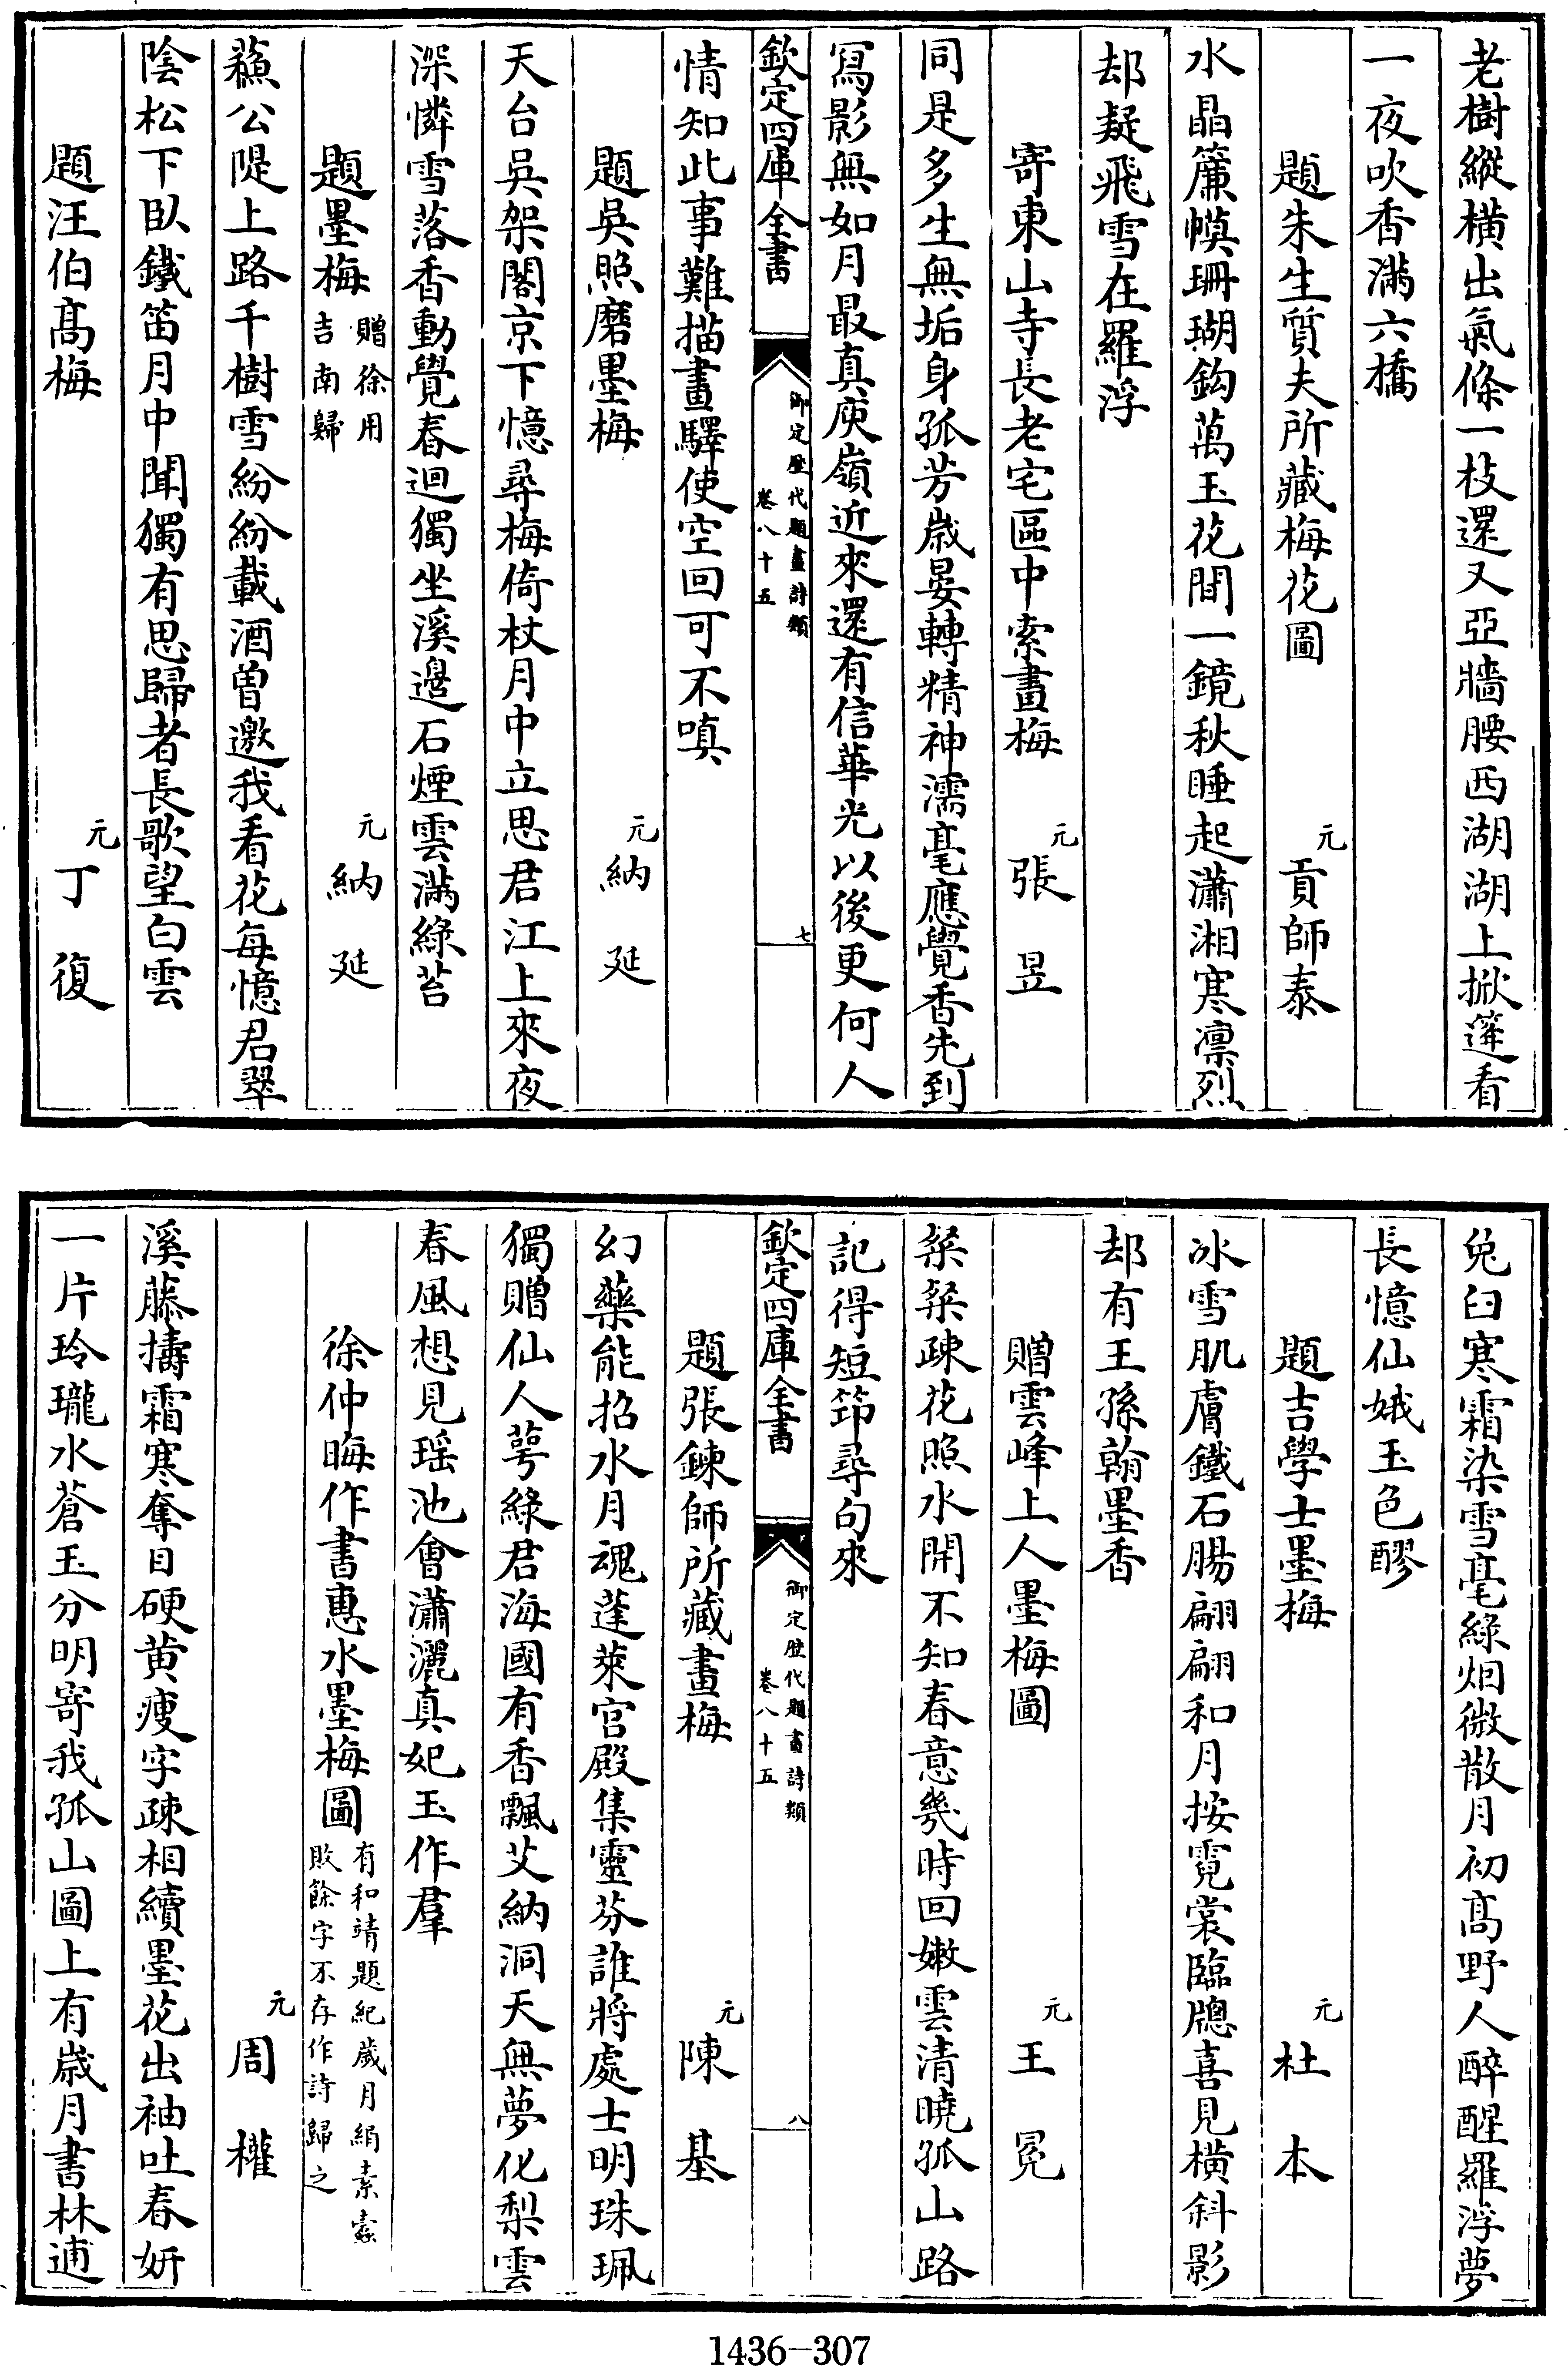 老樹縱橫出氣條一枝還又亞牆腰西湖湖上掀篷看
一夜吹香滿六橋
題朱生質夫所藏梅花圖　元貢師泰
水晶簾幙珊瑚鈎萬玉花間一鏡秋睡起瀟湘寒凛烈
却疑飛雪在羅浮
寄東山寺長老宅區中索畫梅　元張昱
同是多生無垢身孤芳歳晏轉精神濡毫應覺香先到
寫影無如月最真庾嶺近來還有信華光以後更何人
欽定四庫全書　御定歴代題畫詩類　卷八十五　七
情知此事難描畫驛使空回可不嗔
題吳照磨墨梅　元納延
天台吳架閣京下憶尋梅倚杖月中立思君江上來夜
深憐雪落香動覺春迴獨坐溪邊石煙雲滿綠苔
題墨梅贈徐用吉南歸　元納延
蘓公隄上路千樹雪紛紛載酒曾邀我看花每憶君翠
陰松下臥鐵笛月中聞獨有思歸者長歌望白雲
題汪伯髙梅　元丁復
兔臼寒霜染雪毫綠烟微散月初髙野人醉醒羅浮夢
長憶仙娥玉色醪
題吉學士墨梅　元杜本
冰雪肌膚鐵石腸翩翩和月按霓裳臨牕喜見橫斜影
却有王孫翰墨香
贈雲峰上人墨梅圖　元王冕
粲粲疎花照水開不知春意幾時回嫩雲清曉孤山路
記得短笻尋句來
欽定四庫全書　御定歴代題畫詩類　卷八十五　八
題張鍊師所藏畫梅　元陳基
幻藥能招水月魂蓬萊宮殿集靈芬誰將處士明珠珮
獨贈仙人萼綠君海國有香飄艾納洞天無夢化梨雲
春風想見瑶池會瀟灑真妃玉作羣
徐仲晦作書惠水墨梅圖有和靖題紀歲月絹素蠹敗餘字不存作詩歸之
元周權
溪藤擣霜寒奪目硬黄瘦字疎相續墨花出袖吐春妍
一片玲瓏水蒼玉分明寄我孤山圖上有歳月書林逋
1436-307